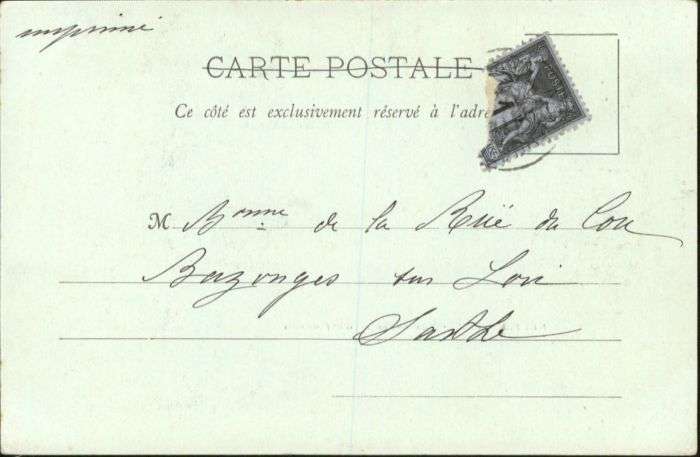 imprimé
CARTE POSTALE
Ce côté est exclusivement réservé à l'adre
M Bonne de la Rüe du Can
Bazouges sur Loir
Sarthe